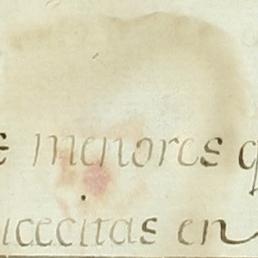 menores
icecitas en